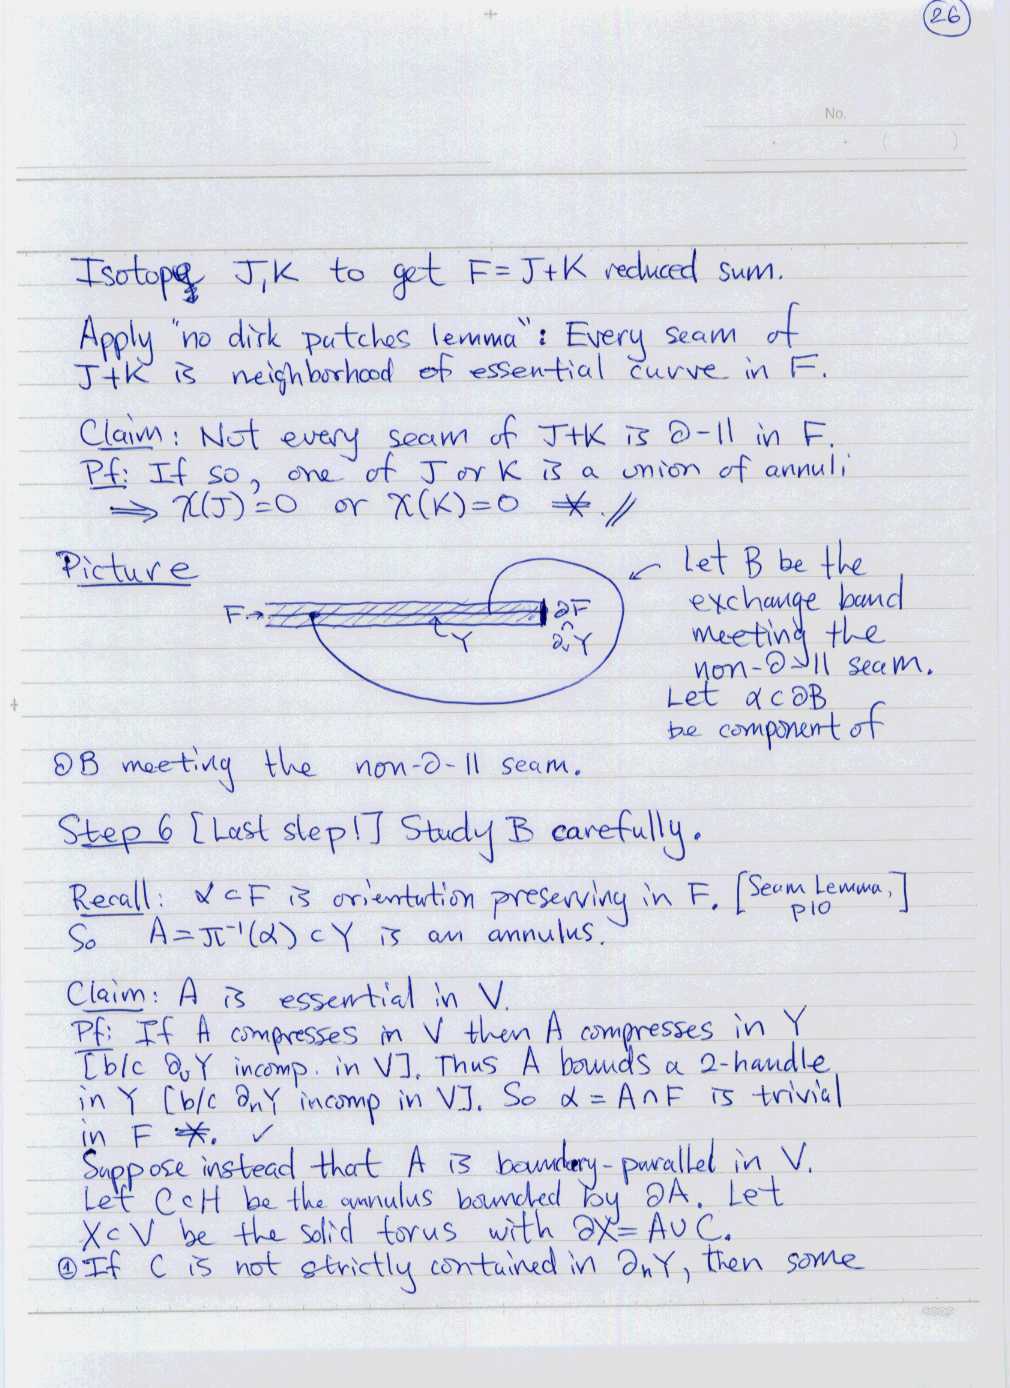 26
No.
Isotope J, K to get F = J+K reduced sum.
Apply "no disk patches lemma": Every seam of
J+K is neighborhood of essential curve in F.
Claim: Not every seam of J+K is ∂-|| in F.
Pf: If so, one of J or K is a union of annuli
⟹ χ(J)=0 or χ(K)=0 ※.//
Picture
F→ Y ∂F
∩
∂ᵥY
Let B be the
exchange band
meeting the
non-∂-|| seam.
Let α ⊂ ∂B
be component of
∂B meeting the non-∂-|| seam.
Step 6 [Last step!] Study B carefully.
Recall: α ⊂ F is orientation preserving in F. [Seam Lemma, p10]
So A = π⁻¹(α) ⊂ Y is an annulus.
Claim: A is essential in V.
Pf: If A compresses in V then A compresses in Y
[b/c ∂ᵥY incomp. in V]. Thus A bounds a 2-handle
in Y [b/c ∂ₕY incomp in V]. So α = A∩F is trivial
in F ※. ✓
Suppose instead that A is boundary-parallel in V.
Let C ⊂ H be the annulus bounded by ∂A. Let
X ⊂ V be the solid torus with ∂X = A ∪ C.
① If C is not strictly contained in ∂ₕY, then some